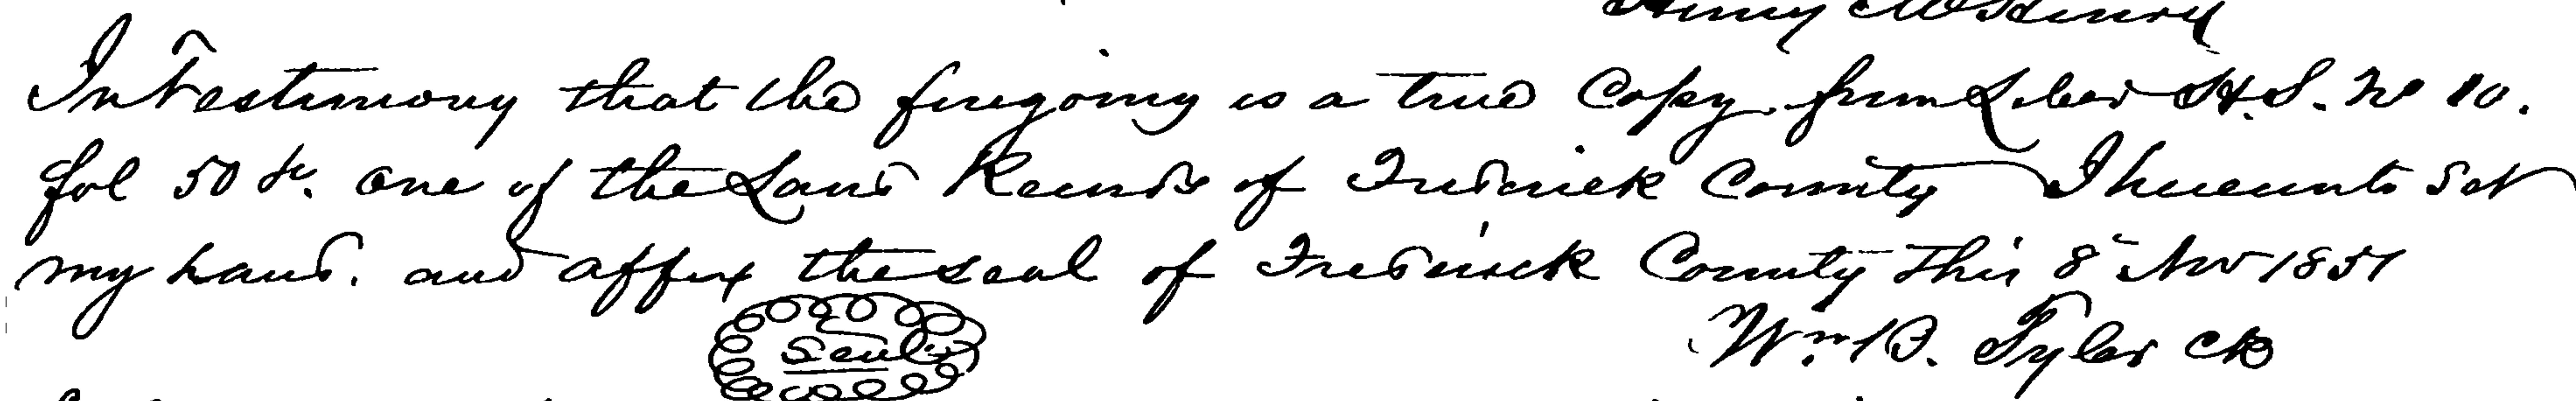 Henry McHenry
In Testimony that the foregoing is a true Copy from Liber H.S. No 10.
fol 50 &c. one of the Land Records of Frederick County I hereunto set
my hand. and affix the seal of Frederick County this 8" Nov 1851
Seal
Wm B. Tyler Clk